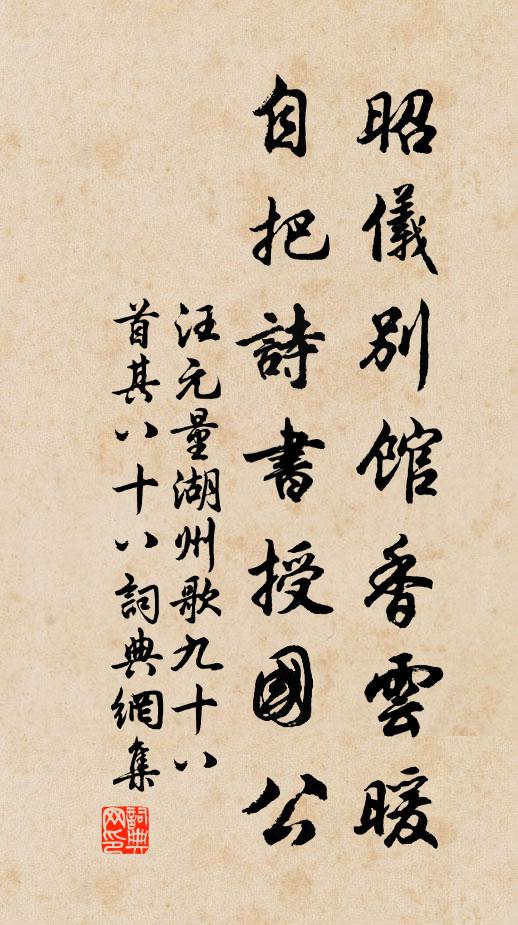 昭儀別館香雲暖
自把詩書授國公
汪元量湖州歌九十八
首其八十八詞典網集
詞典
网印